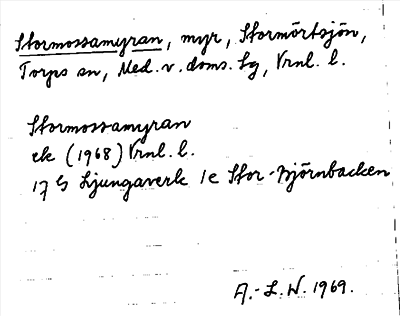 Stormossamyran, myr, Stormörtsjön,
Torps sn, Med. v. doms. hg, Vrnl. l.
Stormossamyran
ek (1968) Vrnl. l.
17 G Ljungaverk 1e Stor-Björnbacken
A.-L. W. 1969.